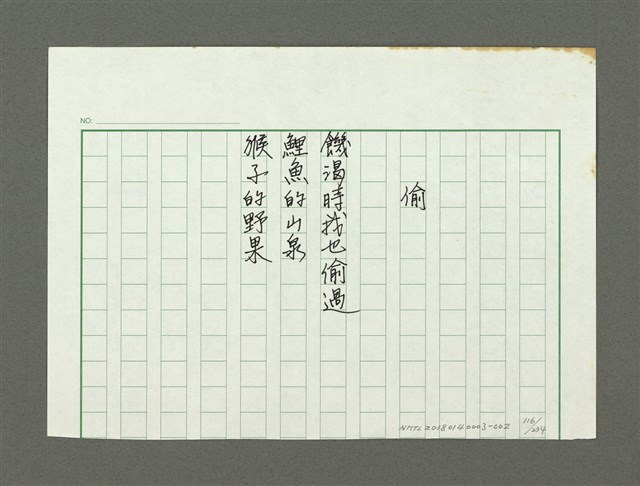 NO:
偷
饑渴時我也偷過
鯉魚的山泉
猴子的野果
NMTL20180140003-002
116/
/234